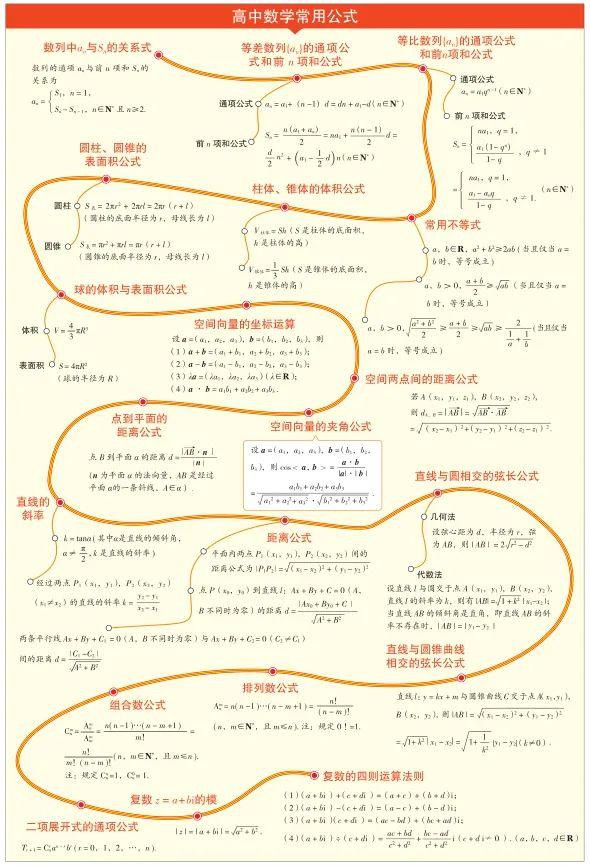 高中数学常用公式
数列中aₙ与Sₙ的关系式
数列的通项 aₙ 与前 n 项和 Sₙ 的
关系为
aₙ = { S₁, n = 1,
Sₙ - Sₙ₋₁, n∈N* 且 n≥2.
等差数列{aₙ}的通项公
式和前 n 项和公式
通项公式 aₙ = a₁ + (n-1) d = dn + a₁-d(n∈N*)
前 n 项和公式 Sₙ = n(a₁+aₙ)/2 = na₁ + n(n-1)/2 d =
d/2 n² + (a₁ - 1/2 d) n(n∈N*)
等比数列{aₙ}的通项公式
和前n项和公式
通项公式
aₙ = a₁qⁿ⁻¹(n∈N*)
前 n 项和公式
Sₙ = { na₁, q = 1,
a₁(1-qⁿ)/(1-q), q ≠ 1
= { na₁, q = 1,
(a₁-aₙq)/(1-q), q ≠ 1. (n∈N*)
圆柱、圆锥的
表面积公式
圆柱 S表 = 2πr² + 2πrl = 2πr (r + l)
(圆柱的底面半径为 r, 母线长为 l)
圆锥 S表 = πr² + πrl = πr (r + l)
(圆锥的底面半径为 r, 母线长为 l)
柱体、锥体的体积公式
V柱体 = Sh (S 是柱体的底面积,
h 是柱体的高)
V锥体 = 1/3 Sh (S 是锥体的底面积,
h 是锥体的高)
常用不等式
a, b∈R, a² + b² ≥ 2ab (当且仅当 a =
b 时, 等号成立)
a, b > 0, (a+b)/2 ≥ √ab (当且仅当 a =
b 时, 等号成立)
a, b > 0, √((a²+b²)/2) ≥ (a+b)/2 ≥ √ab ≥ 2/(1/a+1/b) (当且仅当
a = b 时, 等号成立)
球的体积与表面积公式
体积 V = 4/3 πR³
表面积 S = 4πR²
(球的半径为 R)
空间向量的坐标运算
设 a = (a₁, a₂, a₃), b = (b₁, b₂, b₃), 则
(1) a + b = (a₁ + b₁, a₂ + b₂, a₃ + b₃);
(2) a - b = (a₁ - b₁, a₂ - b₂, a₃ - b₃);
(3) λa = (λa₁, λa₂, λa₃) (λ∈R);
(4) a · b = a₁b₁ + a₂b₂ + a₃b₃.
空间两点间的距离公式
若 A (x₁, y₁, z₁), B (x₂, y₂, z₂),
则 d_A,B = |AB| = √(AB · AB)
= √((x₂-x₁)² + (y₂-y₁)² + (z₂-z₁)²).
点到平面的
距离公式
点 B 到平面 α 的距离 d = |AB · n|/|n|
(n 为平面 α 的法向量, AB 是经过
平面 α 的一条斜线, A∈α).
空间向量的夹角公式
设 a = (a₁, a₂, a₃), b = (b₁, b₂,
b₃), 则 cos< a, b > = a · b/(|a| · |b|)
= (a₁b₁ + a₂b₂ + a₃b₃)/(√(a₁² + a₂² + a₃²) · √(b₁² + b₂² + b₃²)).
直线与圆相交的弦长公式
几何法
设弦心距为 d, 半径为 r, 弦
为 AB, 则 |AB| = 2√(r² - d²)
代数法
设直线 l 与圆交于点 A (x₁, y₁), B (x₂, y₂),
直线 l 的斜率为 k, 则有 |AB| = √(1+k²) |x₁-x₂|;
当直线 AB 的倾斜角是直角, 即直线 AB 的斜
率不存在时, |AB| = |y₁ - y₂|
直线的
斜率
k = tanα (其中α是直线的倾斜角,
α ≠ π/2, k 是直线的斜率)
经过两点 P₁ (x₁, y₁), P₂ (x₂, y₂)
(x₁≠x₂) 的直线的斜率 k = (y₂-y₁)/(x₂-x₁)
距离公式
平面内两点 P₁ (x₁, y₁), P₂ (x₂, y₂) 间的
距离公式为 |P₁P₂| = √((x₁-x₂)² + (y₁-y₂)²)
点 P (x₀, y₀) 到直线 l: Ax + By + C = 0 (A,
B 不同时为零) 的距离 d = |Ax₀ + By₀ + C|/√(A² + B²)
两条平行线 Ax + By + C₁ = 0 (A, B 不同时为零) 与 Ax + By + C₂ = 0 (C₂ ≠ C₁)
间的距离 d = |C₁-C₂|/√(A² + B²)
直线与圆锥曲线
相交的弦长公式
直线 l: y = kx + m 与圆锥曲线 C 交于点 A(x₁, y₁),
B (x₂, y₂), 则 |AB| = √((x₁-x₂)² + (y₁-y₂)²)
= √(1+k²) |x₁-x₂| = √(1+1/k²) |y₁-y₂| (k≠0).
组合数公式
Cₙᵐ = Aₙᵐ/Aₘᵐ = n(n-1)···(n-m+1)/m! =
n!/(m!(n-m)!) (n, m∈N*, 且 m≤n).
注: 规定 Cₙ⁰ = 1, Cₙⁿ = 1.
排列数公式
Aₙᵐ = n(n-1)···(n-m+1) = n!/(n-m)!
(n, m∈N*, 且 m≤n). 注: 规定 0! = 1.
复数 z = a+bi的模
|z| = |a + bi| = √(a² + b²).
复数的四则运算法则
(1) (a + bi) + (c + di) = (a + c) + (b + d)i;
(2) (a + bi) - (c + di) = (a - c) + (b - d)i;
(3) (a + bi) (c + di) = (ac - bd) + (bc + ad)i;
(4) (a + bi) ÷ (c + di) = (ac + bd)/(c² + d²) + (bc - ad)/(c² + d²) i (c + di ≠ 0). (a, b, c, d∈R)
二项展开式的通项公式
Tᵣ₊₁ = Cₙʳaⁿ⁻ʳbʳ (r = 0, 1, 2, ···, n).